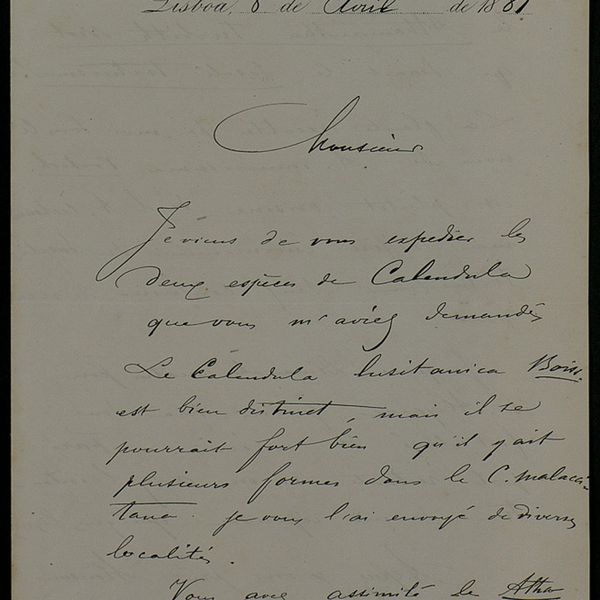 Lisboa, 8 de Avril de 1881
Monsieur
Je viens de vous expedier les
deux espèces de Calendula
que vous m'aviez demandés
Le Calendula lusitanica Boiss.
est bien distinct, mais il se
pourrait fort bien qu'il y ait
plusieurs formes dans le C. malacci-
tana. je vous l'ai envoyé de diverses
localités.
Vous avez assimilé le Atha